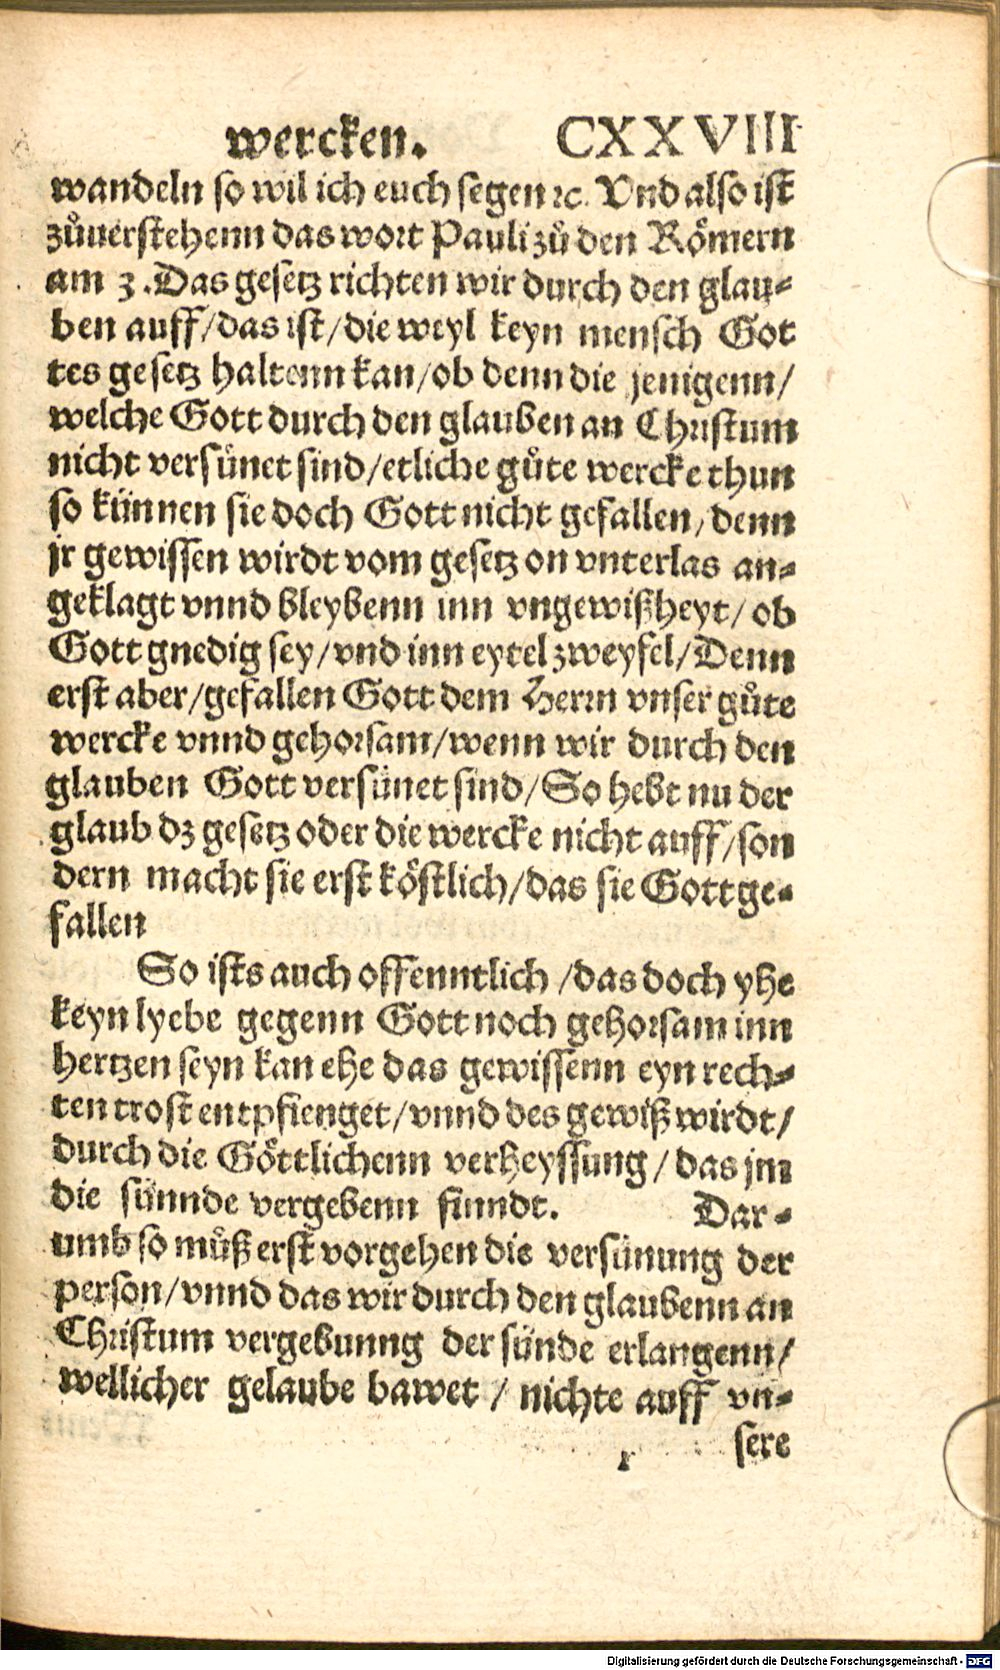 wercken. CXXVIII
wandeln so wil ich euch segen ꝛc. Vnd also ist
zůuerstehenn das wort Pauli zů den Römern
am 3. Das gesetz richten wir durch den glau-
ben auff/das ist/die weyl keyn mensch Got
tes gesetz haltenn kan/ob denn die jenigenn/
welche Gott durch den glauben an Christum
nicht versünet sind/etliche gůte wercke thun
so künnen sie doch Gott nicht gefallen/denn
jr gewissen wirdt vom gesetz on vnterlas an-
geklagt vnnd bleybenn inn vngewißheyt/ob
Gott gnedig sey/vnd inn eytel zweyfel/Denn
erst aber/gefallen Gott dem Herrn vnser gůte
wercke vnnd gehorsam/wenn wir durch den
glauben Gott versünet sind/So hebt nu der
glaub dz gesetz oder die wercke nicht auff/son
dern macht sie erst köstlich/das sie Gott ge-
fallen
So ists auch offenntlich/das doch yhe
keyn lyebe gegenn Gott noch gehorsam inn
hertzen seyn kan ehe das gewissenn eyn rech-
ten trost entpfienget/vnnd des gewiß wirdt/
durch die Göttlichenn verheyssung/das jm
die sünnde vergebenn sinndt. Dar-
umb so můß erst vorgehen die versünung der
person/vnnd das wir durch den glaubenn an
Christum vergebunng der sünde erlangenn/
wellicher gelaube bawet/nichte auff vn-
sere
r
Digitalisierung gefördert durch die Deutsche Forschungsgemeinschaft - DFG